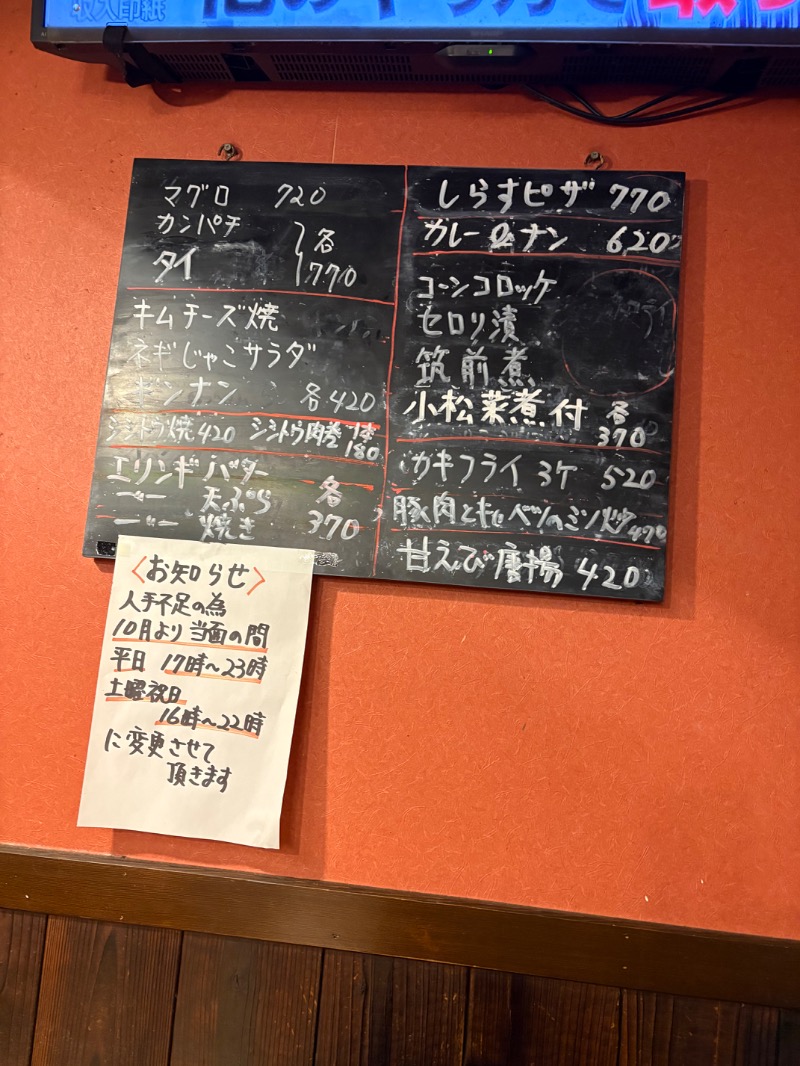 収入印紙
マグロ 720
カンパチ
タイ 各770
キムチーズ焼
ネギじゃこサラダ
ギンナン 各420
シシトウ焼420 シシトウ肉巻 1本180
エリンギバター
〃ー 天ぷら 各
〃ー 焼き 370
しらすピザ 770
カレー&ナン 620
コーンコロッケ
セロリ漬
筑前煮
小松菜煮付 各370
カキフライ 3ケ 520
豚肉とキャベツのミソ炒 470
甘えび唐揚 420
〈お知らせ〉
人手不足の為
10月より当面の間
平日 17時〜23時
土曜祝日
16時〜22時
に変更させて
頂きます